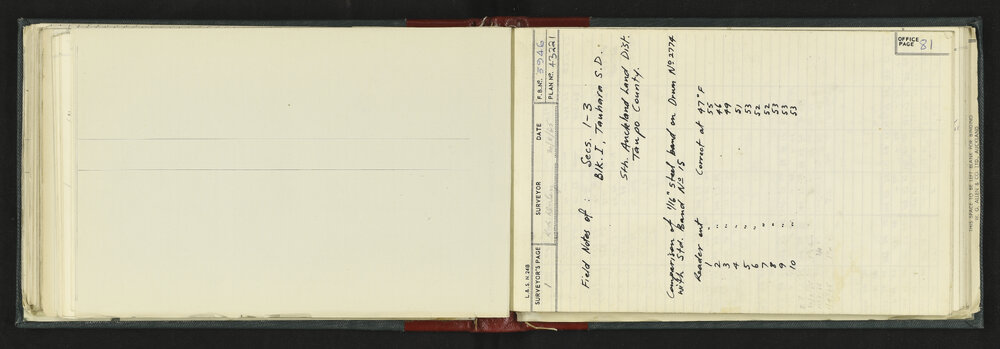 OFFICE PAGE 81
L. & S. N. 24B
SURVEYOR'S PAGE SURVEYOR DATE F.B. No. 5946
1 PLAN No. 43221
Field Notes of : Secs. 1-3
Blk. I, Tauhara S.D.
Sth. Auckland Land Dist.
Taupo County.
Comparison of 1/16" steel band on Drum No 2774
with Std. Band No 15
Reader out Correct at 47°F
1 " 55
2 " 46
3 " 49
4 " 51
5 " 53
6 " 52
7 " 52
8 " 53
9 " 53
10 " 53
THIS SPACE TO BE LEFT BLANK FOR BINDING
W. G. ALLEN & CO. LTD., AUCKLAND